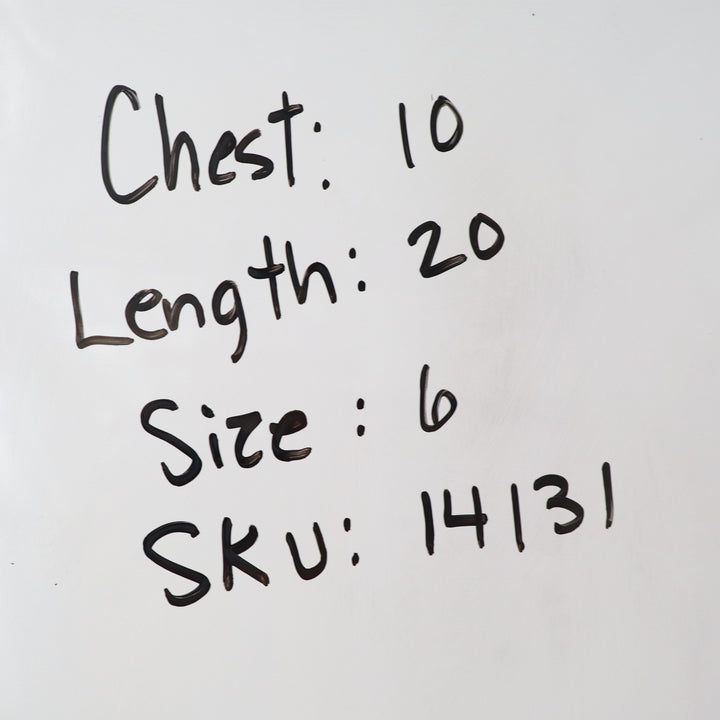 Chest: 10
Length: 20
Size: 6
SKU: 14131